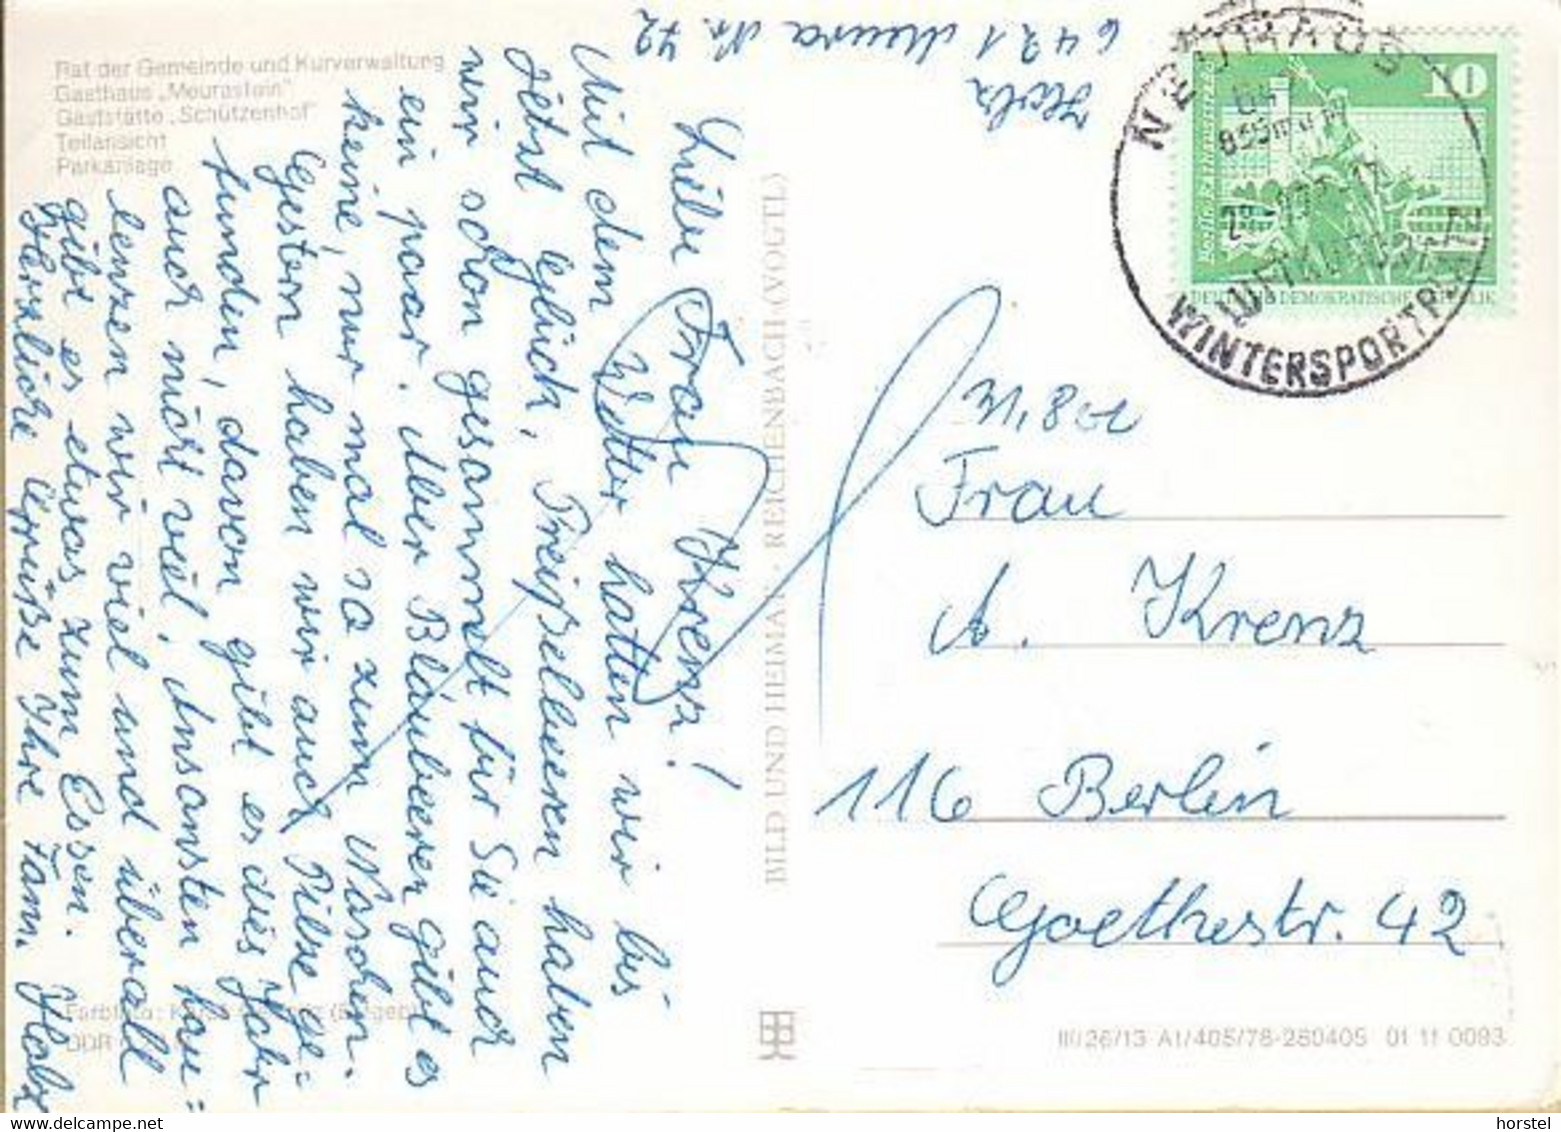 Rat der Gemeinde und Kurverwaltung
Gasthaus „Meurastein"
Gaststätte „Schützenhof"
Teilansicht
Parkanlage
Holz
6421 Meura Nr. 72
Liebe Frau Krenz!
Mit dem Wetter hatten wir bis
jetzt Glück, Preißelbeeren haben
wir schon gesammelt für Sie auch
ein paar. Aber Blaubeeren gibt es
keine, nur mal so zum Naschen.
Gestern haben wir auch Pilze ge=
funden, davon gibt es dies Jahr
auch nicht viel. Ansonsten fau=
lenzen wir viel und überall
gibt es etwas zum Essen.
Herzliche Grüße Ihre Fam. Holz
BILD UND HEIMAT · REICHENBACH (VOGTL)
10
DEUTSCHE DEMOKRATISCHE REPUBLIK
NEUHAUS
835m ü M
WINTERSPORTPLATZ
Frau
A. Krenz
116 Berlin
Goethestr. 42
Farbfoto:
DDR
III/26/13 A1/405/78-280405 01 11 0093
horstel